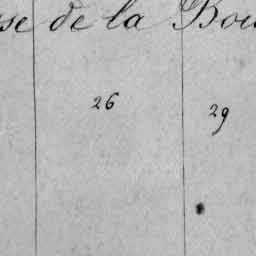 se de la Bou
26 29